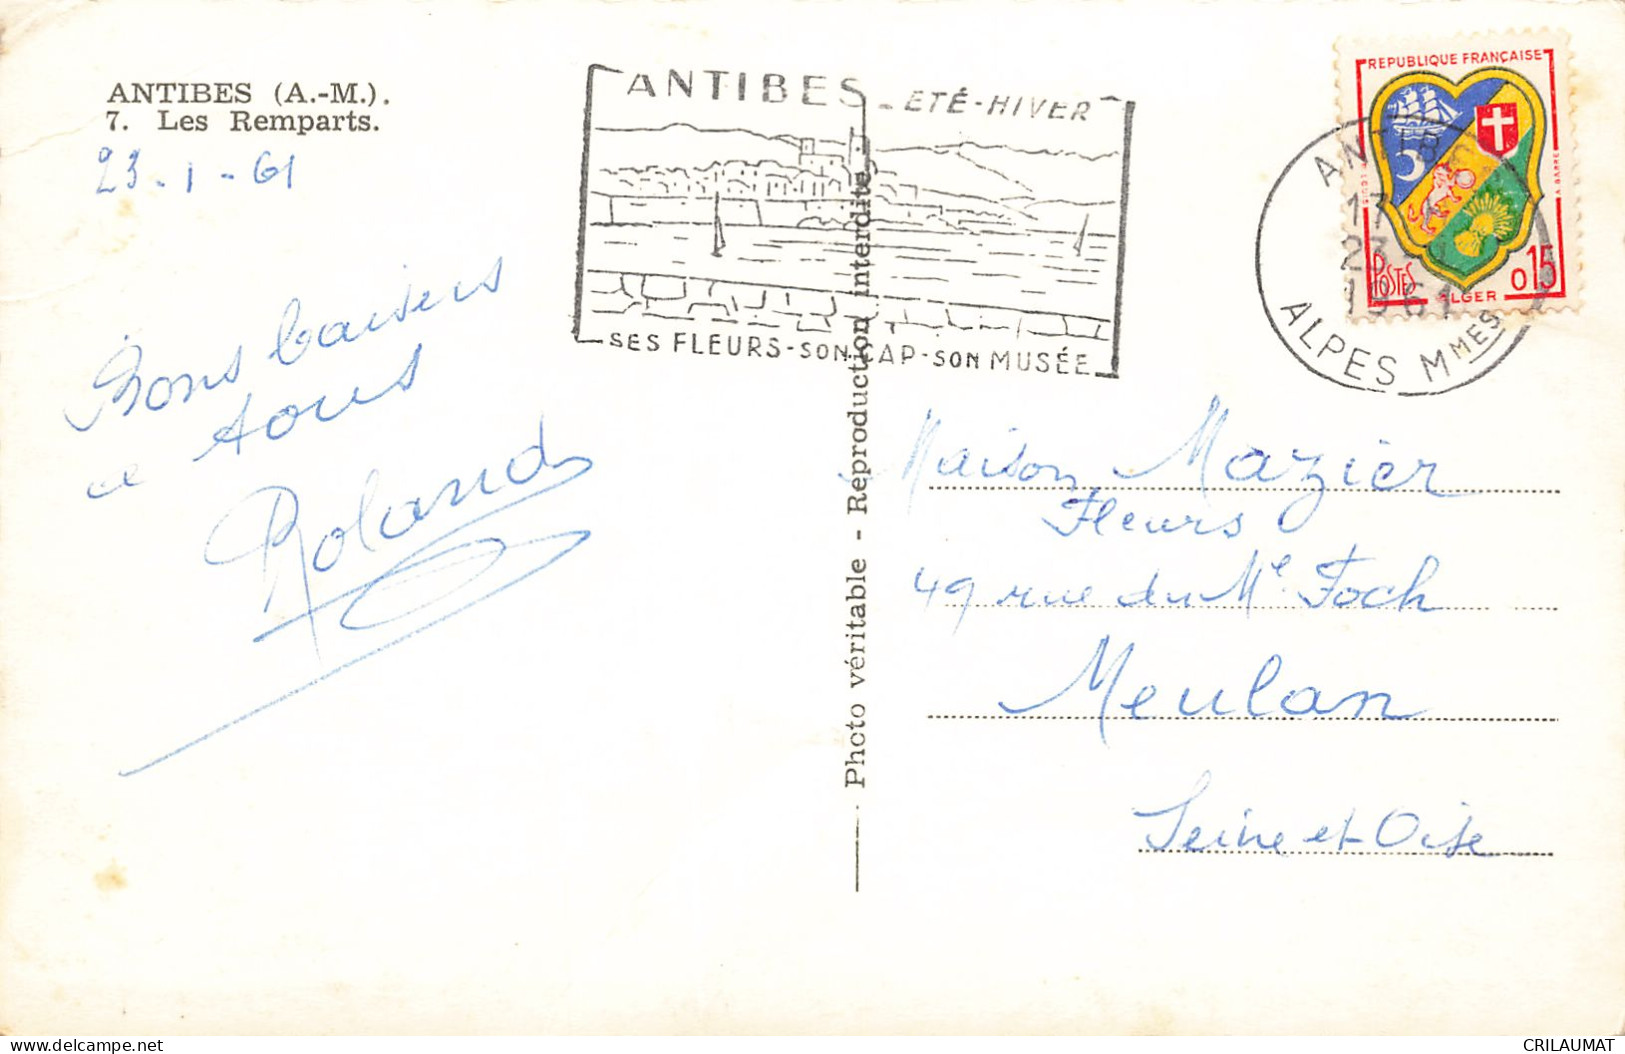 ANTIBES (A.-M.).
7. Les Remparts.
23-1-61
Bons baisers
a tous
Roland
ANTIBES - ETÉ-HIVER
SES FLEURS-SON CAP-SON MUSÉE
Photo véritable - Reproduction interdite
REPUBLIQUE FRANÇAISE
POSTES
ALGER
0,15
ANTIBES
17
23
1961
ALPES MMES
Maison Mazier
Fleurs
49 rue du Mel Foch
Meulan
Seine et Oise
delcampe.net
CRILAUMAT